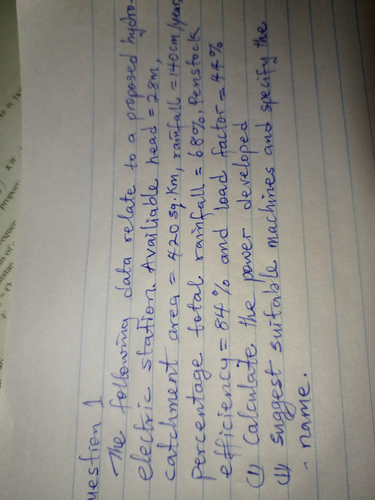 uestion 1
The following data relate to a proposed hydro-
electric station. Availiable head = 28m,
catchment area = 420sq.km, rainfall = 140cm/year,
percentage total rainfall = 68%, Penstock
efficiency = 84% and load factor = 44%
(i) Calculate the power developed
(ii) suggest suitable machines and specify the
name.